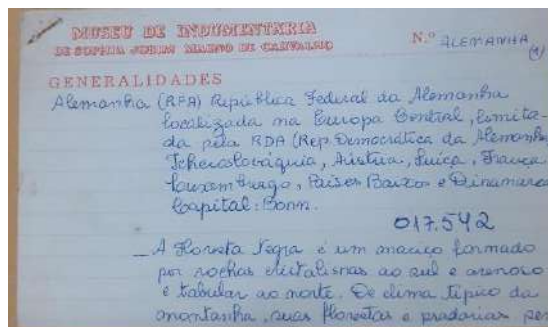 MUSEU DE INDUMENTÁRIA
DE SOPHIA JOBIM MAGNO DE CARVALHO
N.º ALEMANHA
(1)
GENERALIDADES
Alemanha (RFA) República Federal da Alemanha
localizada na Europa Central, limita-
da pela RDA (Rep. Democrática da Alemanha
Tchecoslováquia, Áustria, Suíça, França
Luxemburgo, Países Baixos e Dinamarca
Capital: Bonn.
017.542
_ A Floresta Negra é um maciço formado
por rochas cristalinas ao sul e arenoso
e tabular ao norte. De clima típico da
montanha, suas florestas e pradarias